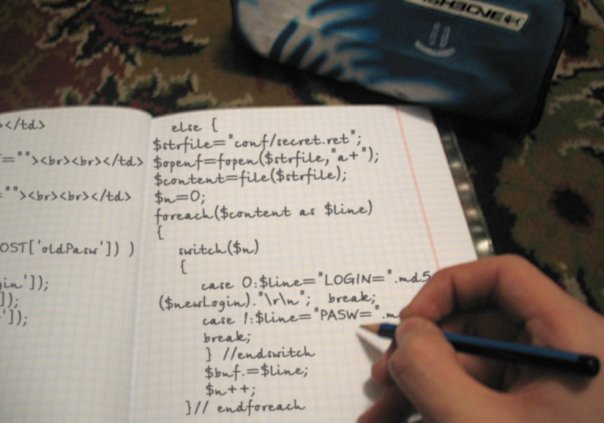 ></td>
="">  </td>
="">  </td>
OST['oldPasw']) )
gin']);
']);
']);
else {
$strfile="conf/secret.ret";
$openf=fopen($strfile,"a+");
$content=file($strfile);
$n=0;
foreach($content as $line)
{
switch($n)
{
case 0:$line="LOGIN=".md5
($newLogin)."\r\n"; break;
case 1:$line="PASW=".m
break;
} //endswitch
$buf.=$line;
$n++;
}// endforeach